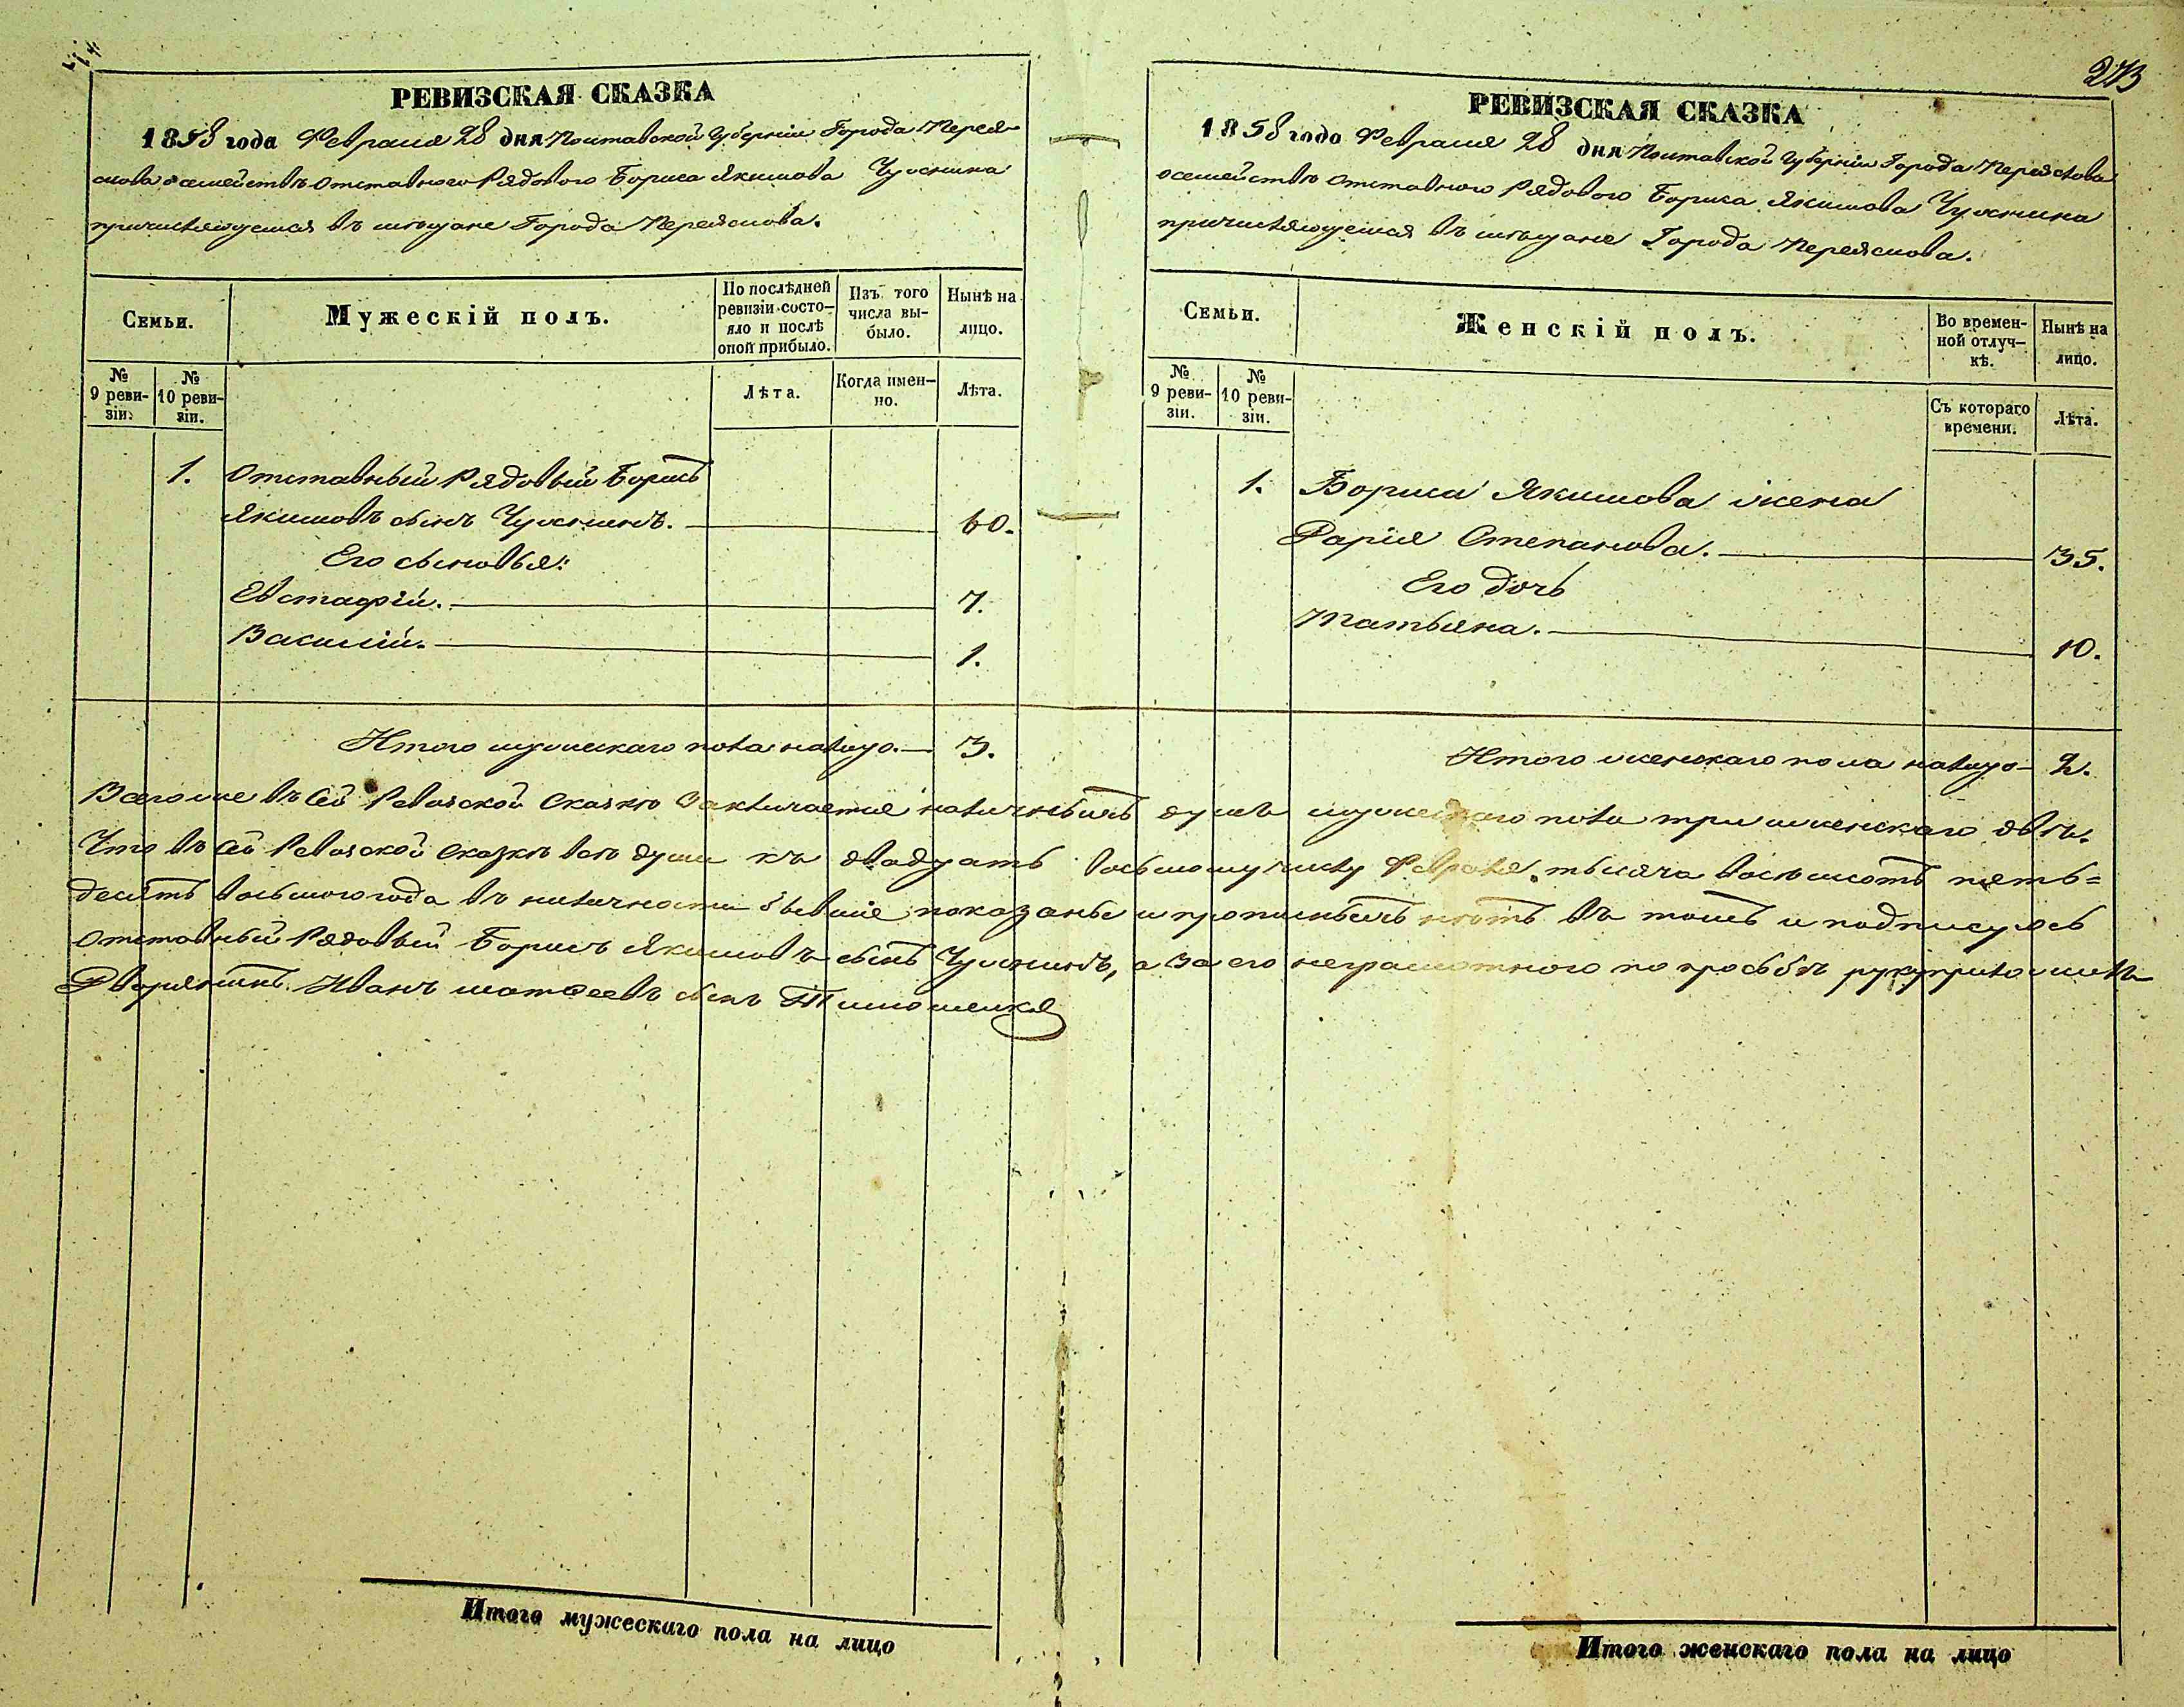 273
РЕВИЗСКАЯ СКАЗКА
1858 года Февраля 28 дня Полтавской Губерніи Города Перея-
слова о семействѣ отставного Рядового Бориса Якимова
причисляющемся въ мѣщане Города Переяслова.
Семьи.
Мужескій полъ.
По послѣдней
ревизіи состо-
яло и послѣ
оной прибыло.
Изъ того
числа вы-
было.
Нынѣ на
лицо.
№
9 реви-
зіи.
№
10 реви-
зіи.
Лѣта.
Когда имен-
но.
Лѣта.
1. Отставный Рядовый Борисъ
Якимовъ сынъ 60.
Его сыновья:
Евстафій. 7.
Василій. 1.
Итого мужескаго пола налицо. 3.
РЕВИЗСКАЯ СКАЗКА
1858 года Февраля 28 дня Полтавской Губерніи Города Переяслова
о семействѣ отставного Рядового Бориса Якимова
причисляющемся въ мѣщане Города Переяслова.
Семьи.
Женскій полъ.
Во времен-
ной отлуч-
кѣ.
Нынѣ на
лицо.
№
9 реви-
зіи.
№
10 реви-
зіи.
Съ котораго
времени.
Лѣта.
1. Бориса Якимова жена
Дарія Степанова. 35.
Его дочь
Татьяна. 10.
Итого женскаго пола налицо 2.
Всего же въ сей Ревизской Сказкѣ заключается наличныхъ душъ мужескаго пола три женскаго двѣ.
Что въ сей Ревизской сказкѣ всѣ души къ двадцать восьмому числу Февраля тысяча восемьсотъ пять=
десятъ восьмого года въ наличности бывшіе показаны и прописныхъ нѣтъ въ томъ и подписуюсь
Отставный Рядовый Борисъ Якимовъ сынъ а за его неграмотного по прозьбѣ руку приложилъ
Дворянинъ Иванъ Матфеевъ сынъ Тимошенко
Итого мужескаго пола на лицо
Итого женскаго пола на лицо